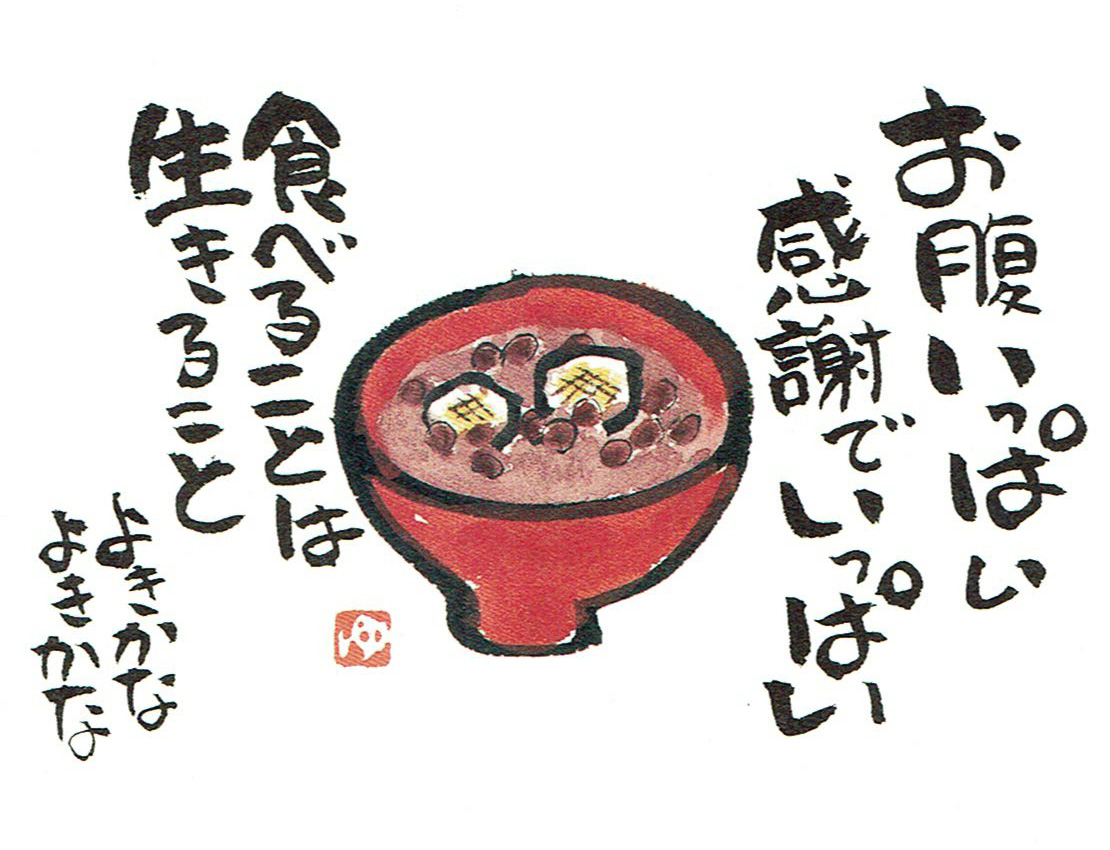 お腹いっぱい
感謝でいっぱい
食べることは
生きること
よきかな
よきかな